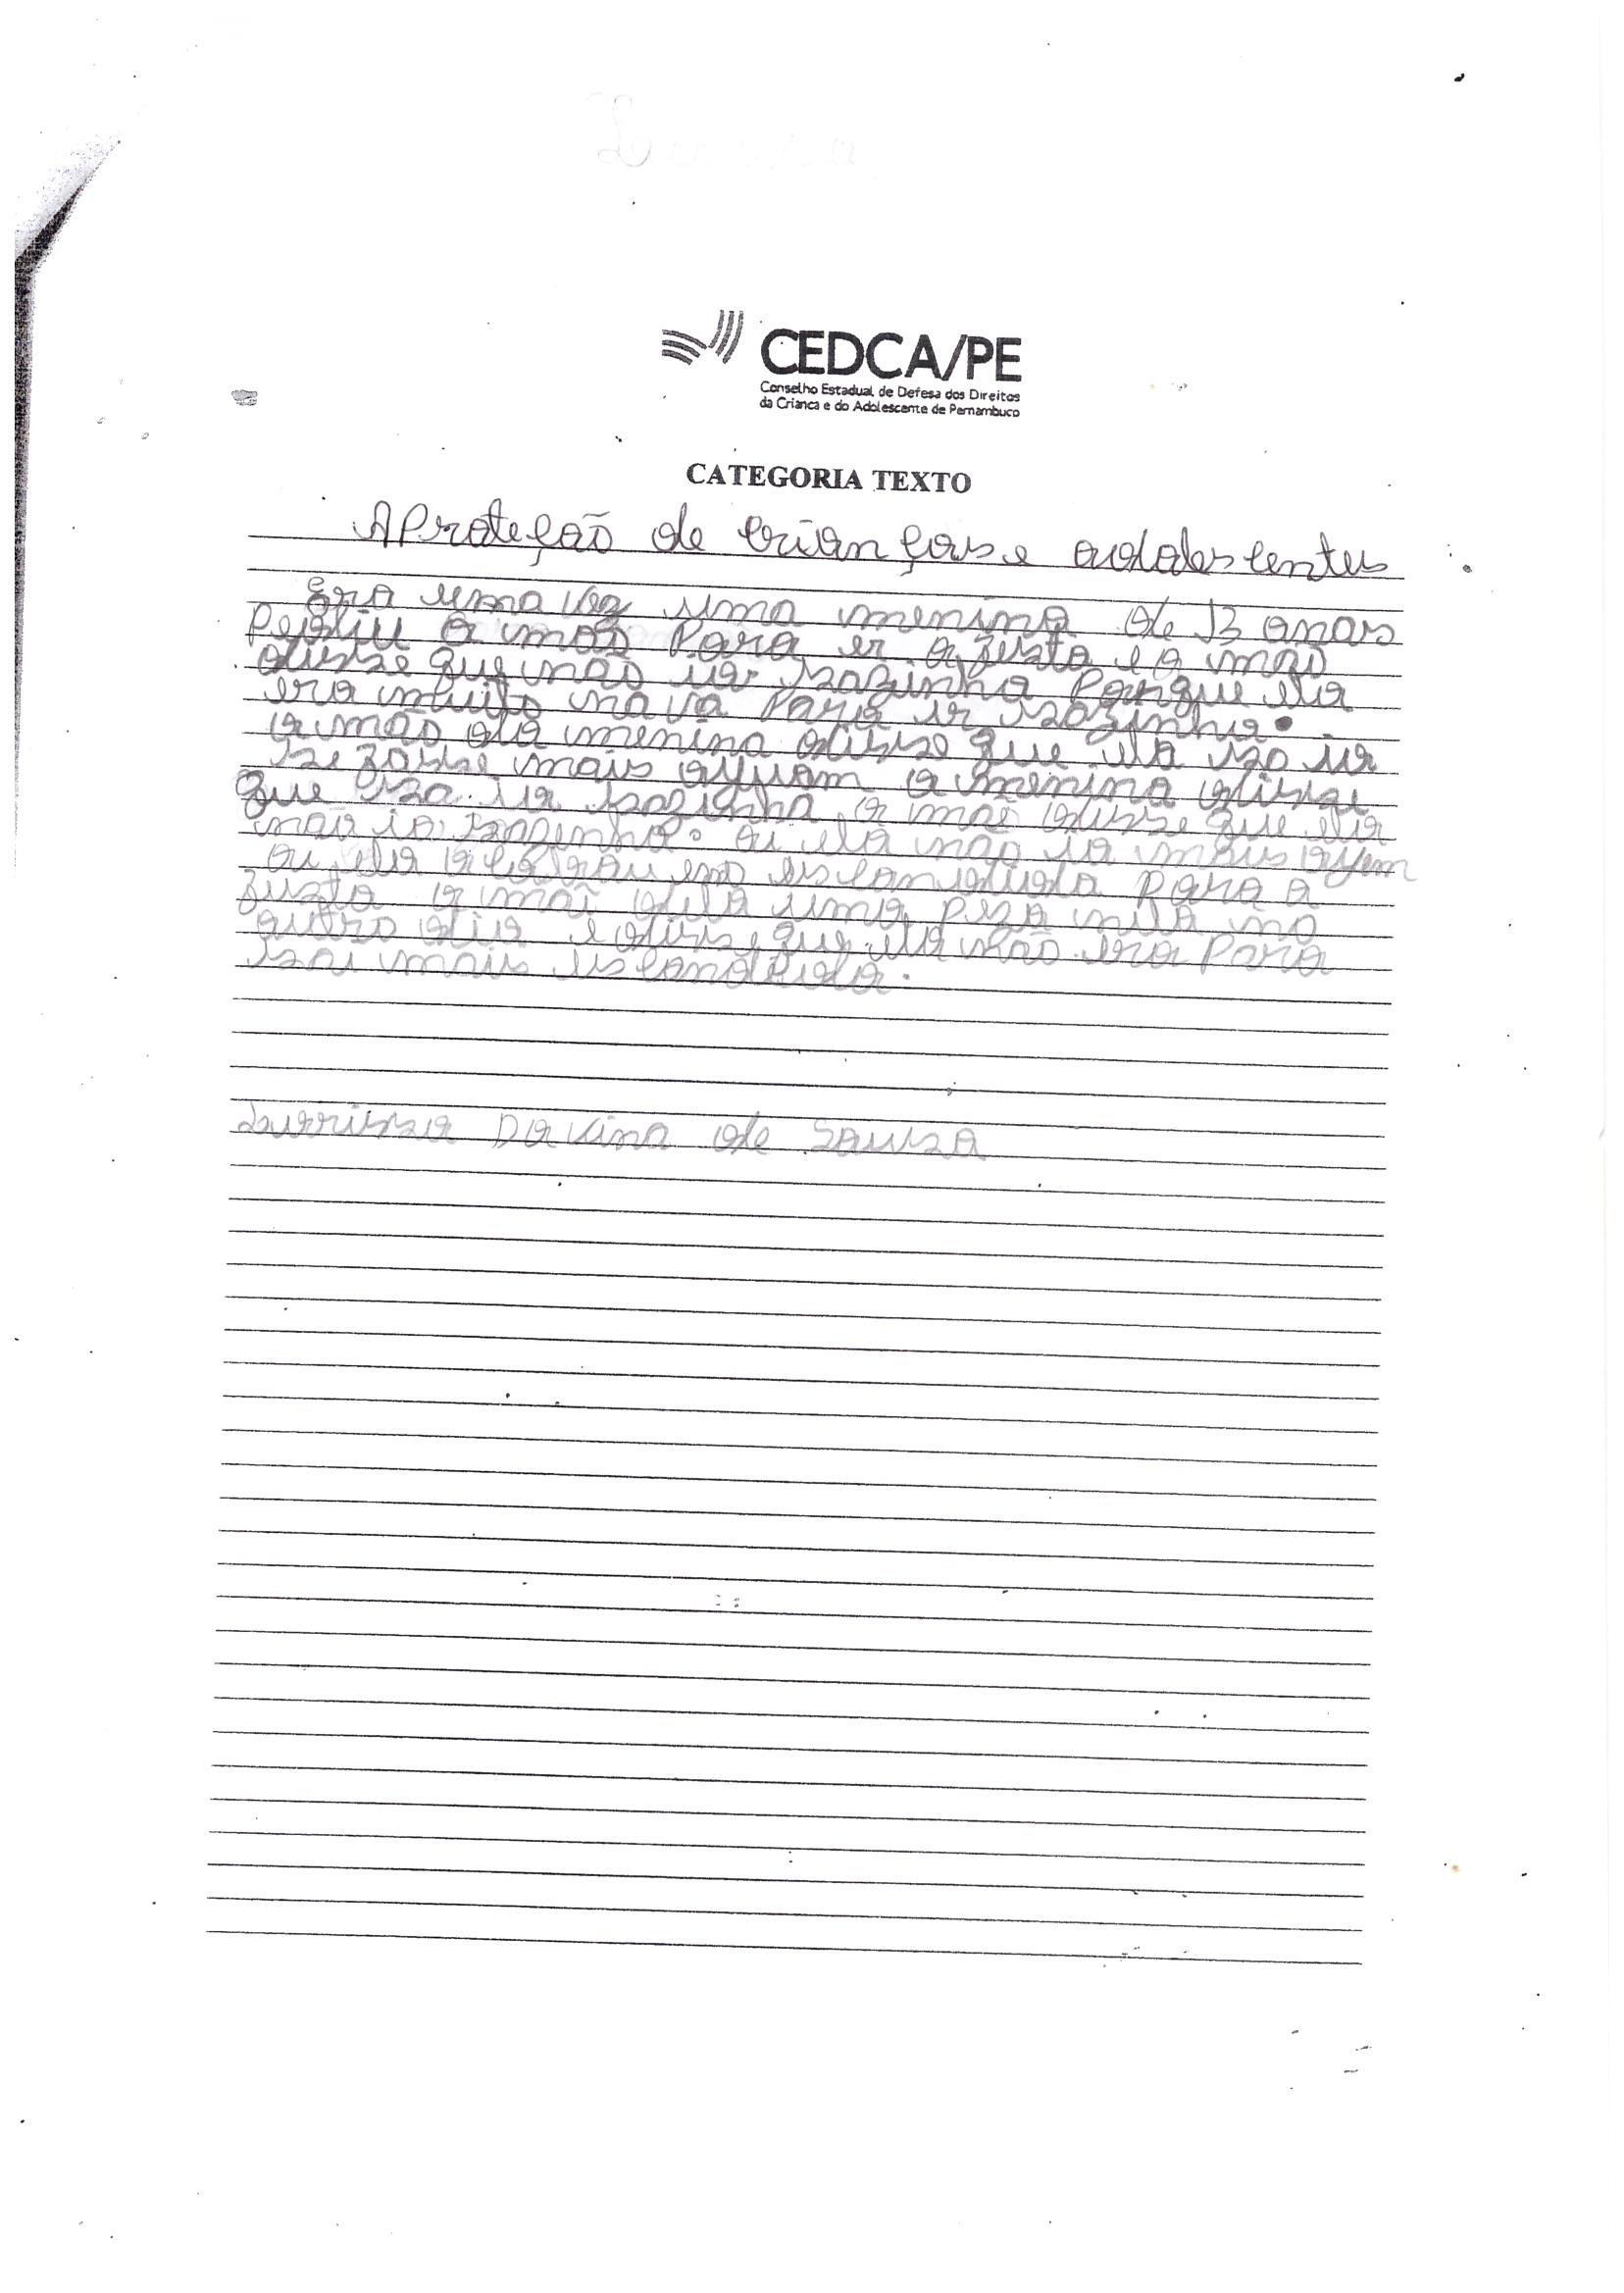 CEDCA/PE
Conselho Estadual de Defesa dos Direitos
da Crianca e do Adolescente de Pernambuco
CATEGORIA TEXTO
A Proteção de crianças e adolescentes
Era uma vez uma menina de 13 anos
Pediu a mão Para er a festa e a mão
disse que não ia sozinha Porque ela
era muito nova Para ir sozinha.
a mão da menina disse que ela so ia
se fosse mais a menina disse
que so ia sozinha a mãe disse que ela
não ia sozinha. ai ela não ia mais
ai ela escondida Para a
festa a mãe dela uma no
outro dia e disse que ela não era Para
sai mais escondida.
Larrissa Davina de Souza